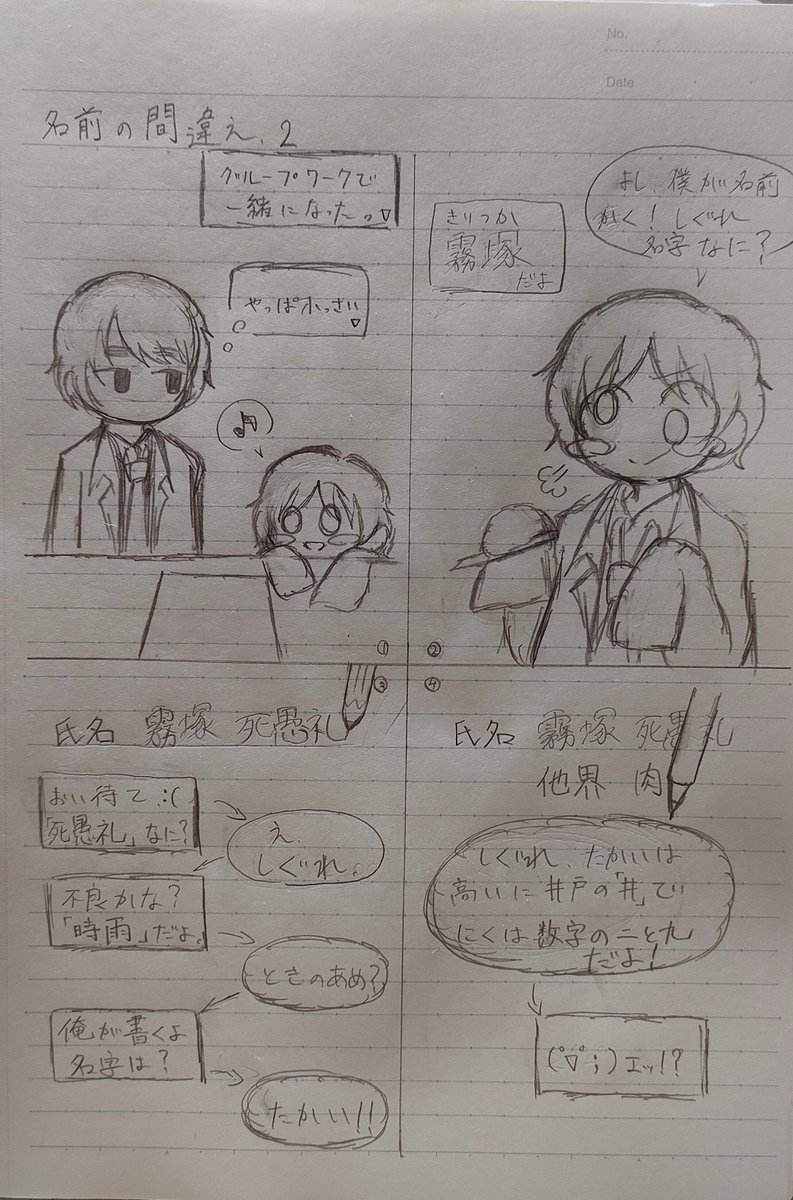 No.
Date
名前の間違え、2
グループワークで
一緒になったっ▽
やっぱ小っさい
▽
♪
①
よし、僕が名前
書く！しぐれ
名字なに？
きりつか
霧塚
だよ
②
③
氏名 霧塚 死愚礼
おい待て.:(
「死愚礼」なに？
え、
しぐれ。
不良かな？
「時雨」だよ。
ときのあめ？
俺が書くよ
名字は？
たかいい!!
④
氏名 霧塚 死愚礼
他界 肉
しぐれ、たかいいは
高いに井戸の「井」で
にくは数字の二と九
だよ！
(°▽°;)エッ!?